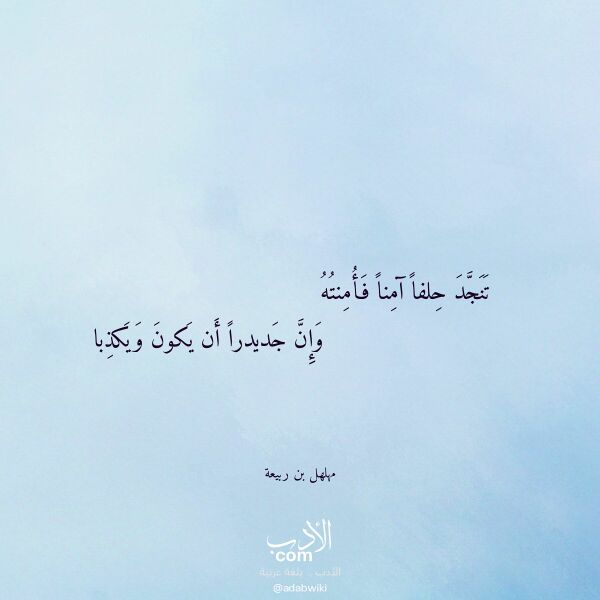 تَنَجَّدَ حِلفاً آمِناً فَأُمِنتُهُ
وَإِنَّ جَديدراً أَن يَكونَ وَيَكذِبا
مهلهل بن ربيعة
الأدب
com
الأدب .. بلغة عربية
@adabwiki